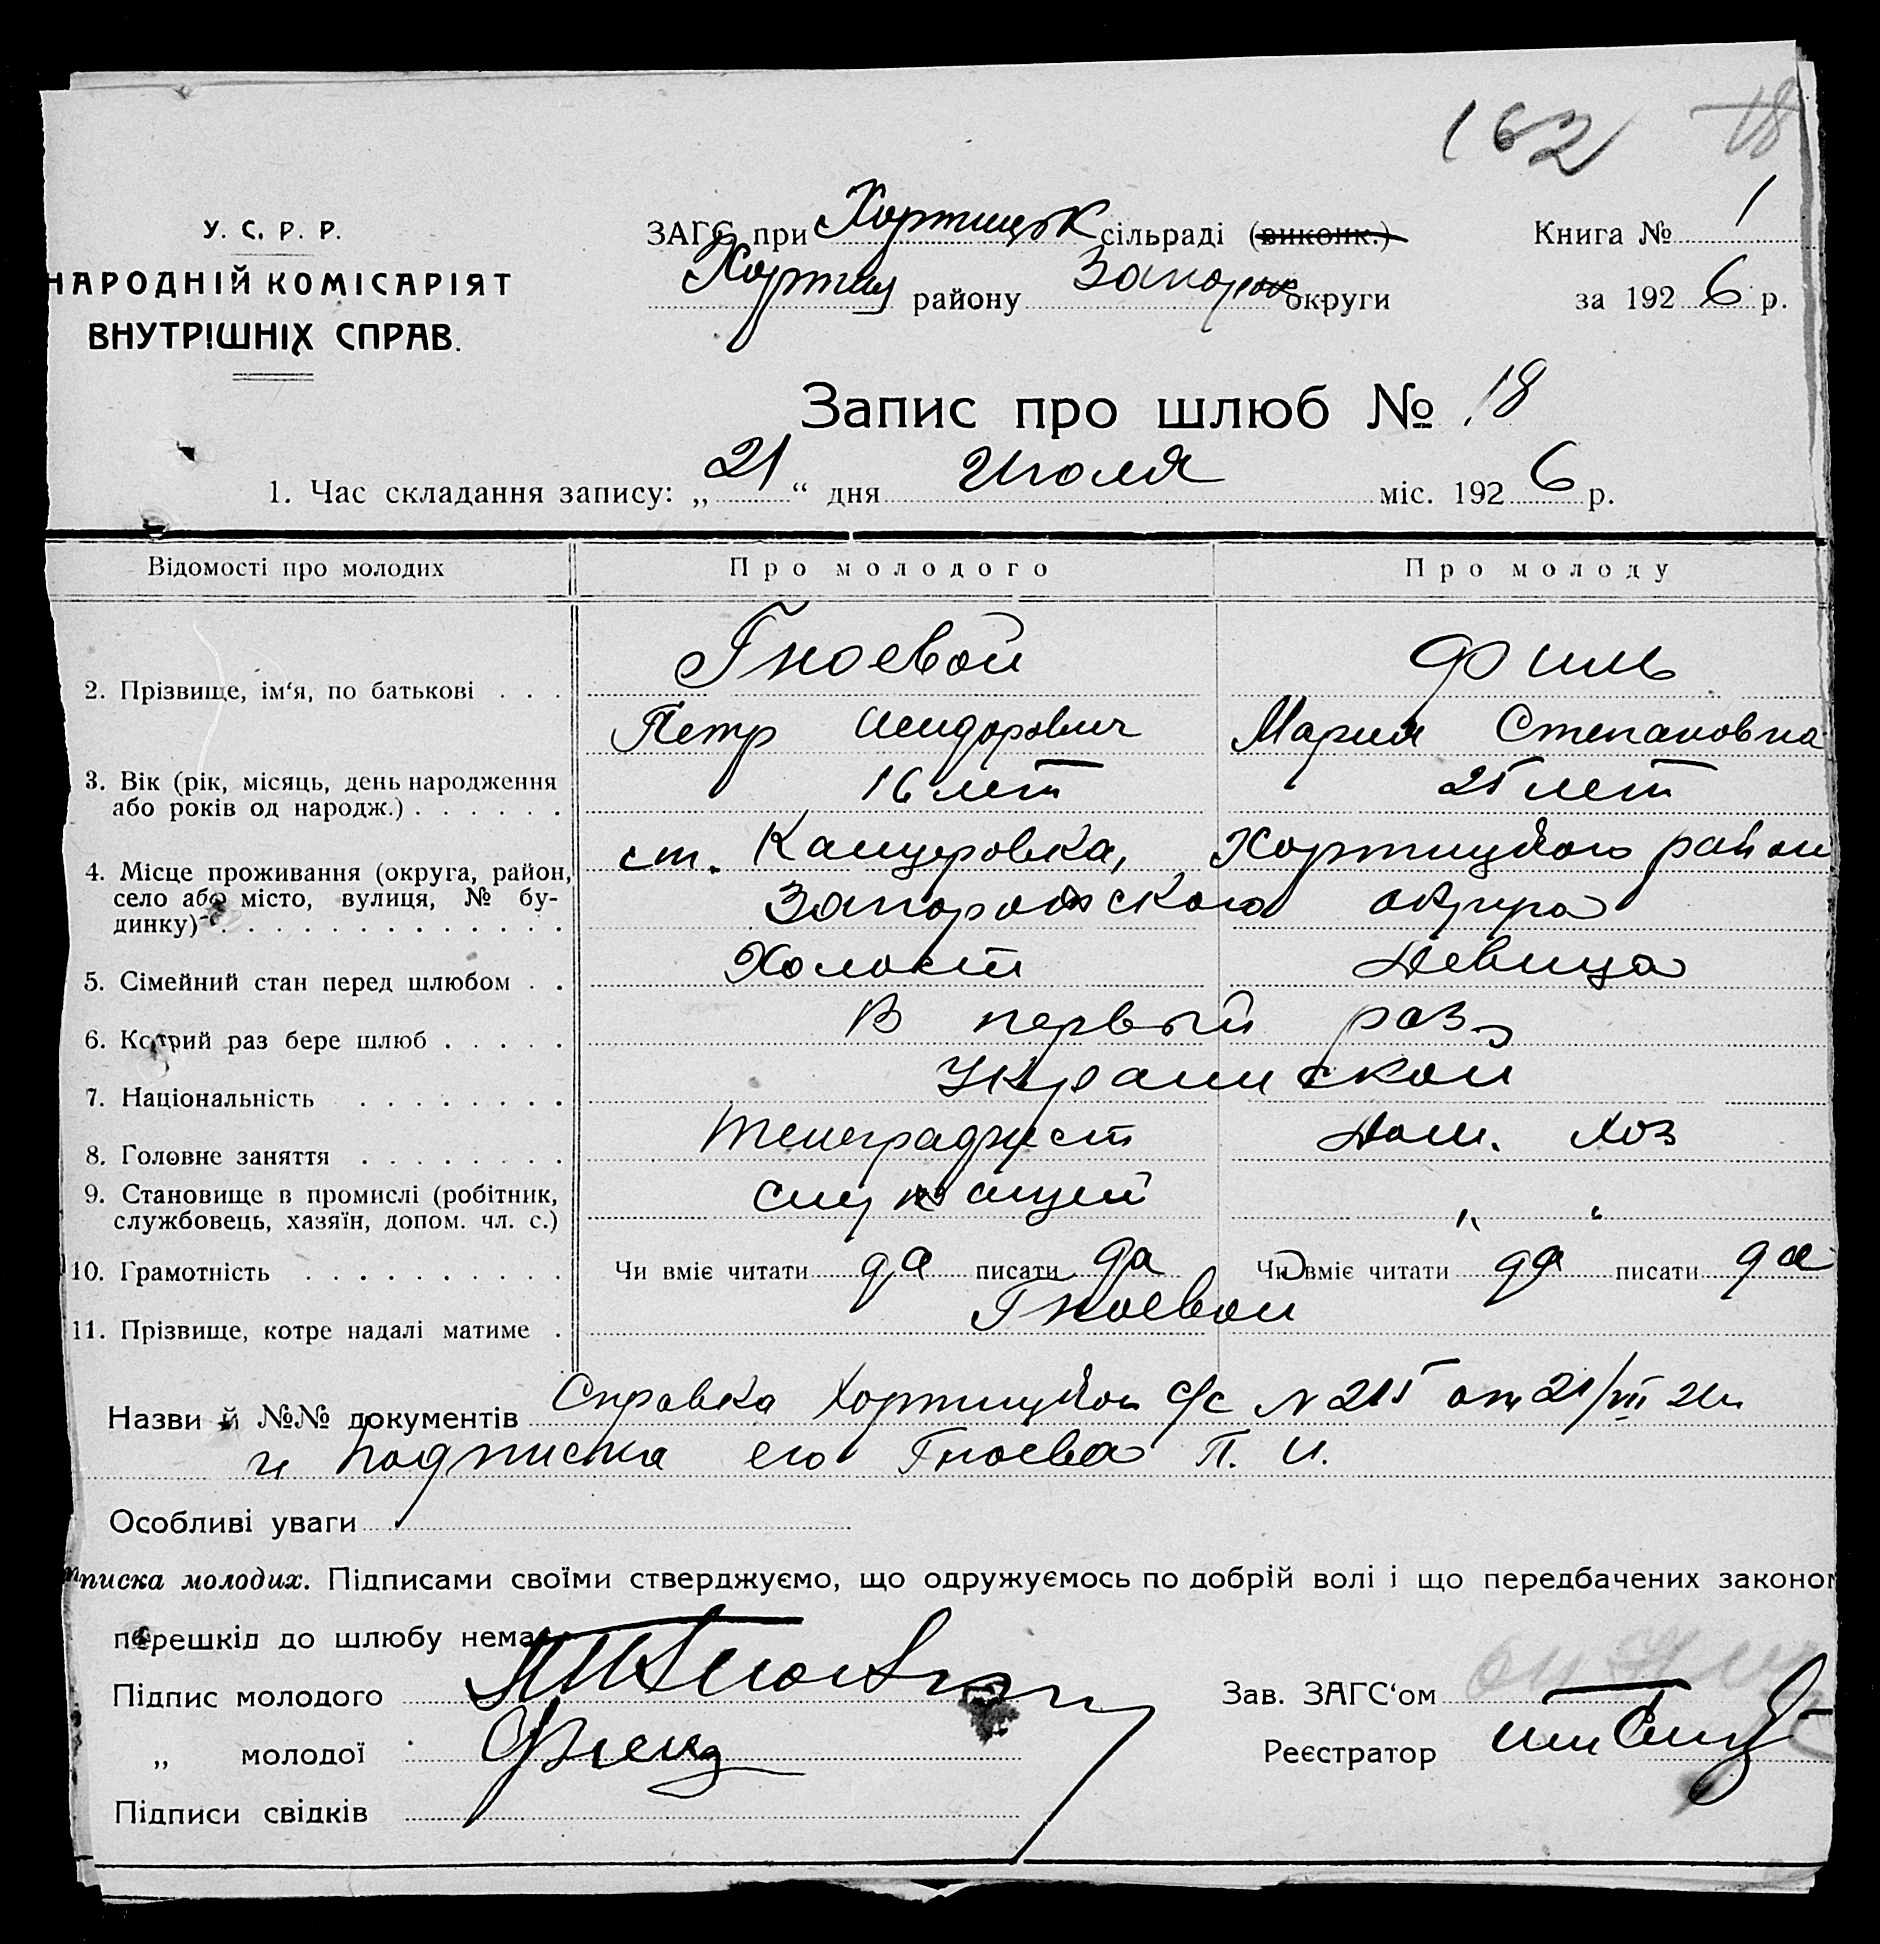 162 18
У. С. Р. Р.
НАРОДНІЙ КОМІСАРІЯТ
ВНУТРІШНІХ СПРАВ.
ЗАГС при Хортицьк сільраді (виконк.) Книга № 1
Хортиц району Запорож округи за 1926 р.
Запис про шлюб № 18
1. Час складання запису: „21“ дня Июля міс. 1926 р.
Відомості про молодих Про молодого Про молоду
2. Прізвище, ім‘я, по батькові . . . Гноевой Филь
Петр Исидорович Мария Степановна
3. Вік (рік, місяць, день народження
або років од народж.) . . . . . . 16 лет 25 лет
4. Місце проживання (округа, район,
село або місто, вулиця, № бу-
динку) . . . . . . . . . . . . .
ст. Канцеровка, Хортицкого район
Запорожского округа
5. Сімейний стан перед шлюбом . . Холост Девица
6. Котрий раз бере шлюб . . . . . В первый раз
7. Національність . . . . . . . . Украинской
8. Головне заняття . . . . . . . . Телеграфист Дом. хоз
9. Становище в промислі (робітник,
службовець, хазяїн, допом. чл. с.) служащий " "
10. Грамотність . . . . . . . . . . Чи вміє читати да писати да Чи вміє читати да писати да
11. Прізвище, котре надалі матиме . Гноевой
Назви й №№ документів Справка Хортицкой с/с N 215 от 21/VII 26
и подписка его Гноева П. И.
Особливі уваги
писка молодих. Підписами своїми стверджуємо, що одружуємось по добрій волі і що передбачених законом
перешкід до шлюбу нема
Підпис молодого Зав. ЗАГС‘ом
„ молодої Реєстратор
Підписи свідків